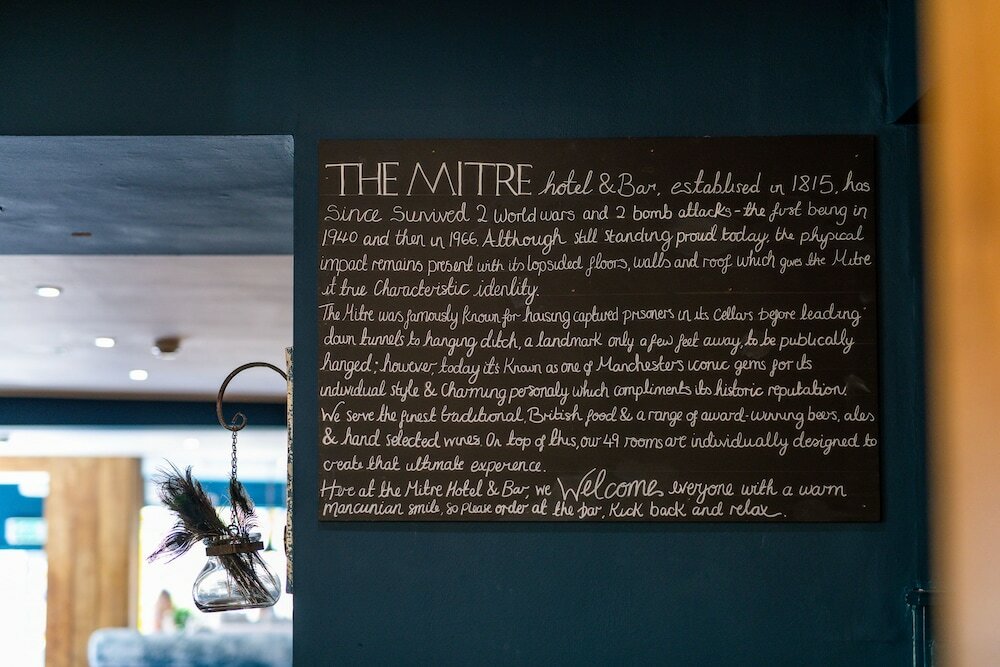 THE MITRE hotel & Bar, establised in 1815, has
Since Survived 2 World wars and 2 bomb attacks - the first being in
1940 and then in 1966. Although still standing proud today, the phyical
impact remains present with its lopsided floors, walls and roof which gives the Mitre
it true Characteristic identity.
The Mitre was famously known for housing captured prisoners in its Cellars before leading
down tunnels to hanging ditch, a landmark only a few feet away, to be publically
hanged; however today it's Known as one of Manchesters iconic gems for its
individual style & Charming personaly which compliments its historic reputation.
We serve the finest traditional, British food & a range of award-winning beers, ales
& hand selected wines. On top of this, our 49 rooms are individually designed to
create that ultimate experence.
Here at the Mitre Hotel & Bar, we Welcome everyone with a warm
mancunian smile, so please order at the bar, Kick back and relax.